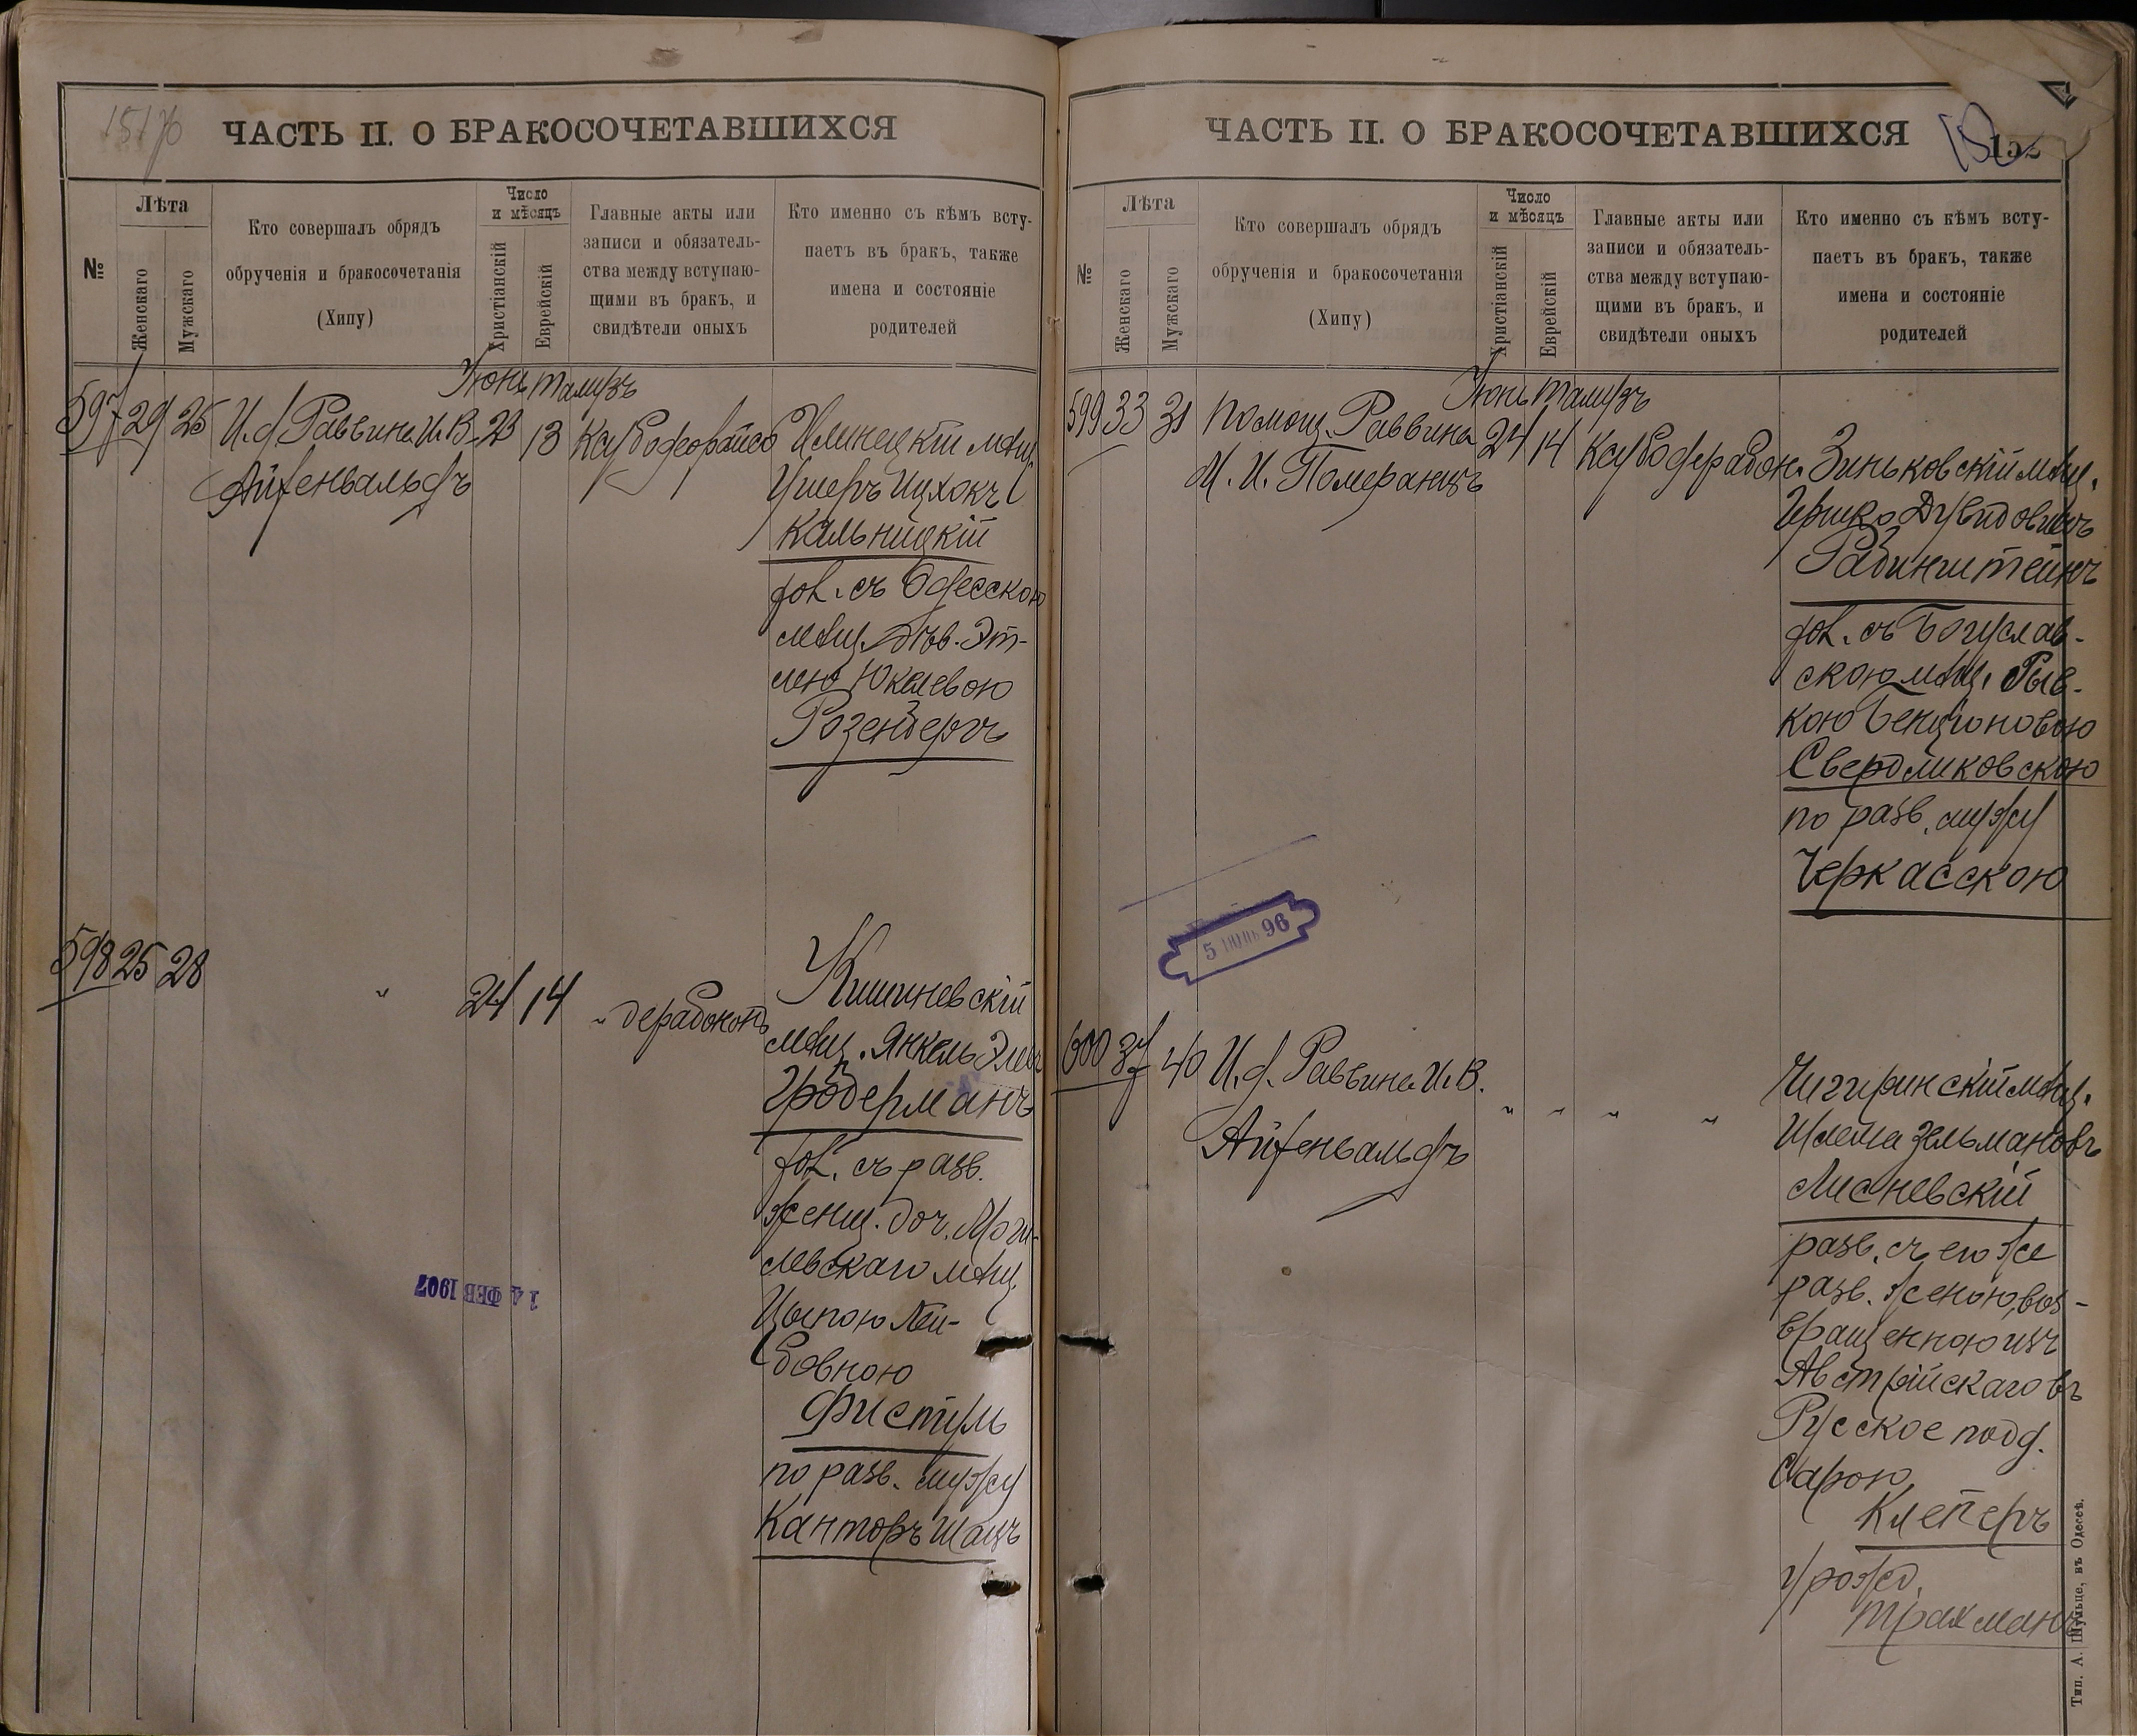 ЧАСТЬ II. О БРАКОСОЧЕТАВШИХСЯ
№
Лѣта
Женскаго
Мужскаго
Кто совершалъ обрядъ
обрученія и бракосочетанія
(Хипу)
Число
и мѣсяцъ
Христіанскій
Еврейскій
Главные акты или
записи и обязатель-
ства между вступаю-
щими въ бракъ, и
свидѣтели оныхъ
Кто именно съ кѣмъ всту-
паетъ въ бракъ, также
имена и состояніе
родителей
Іюнь Тамузъ
597 29 25 И. д. Раввина И. В. 23 13
Айзенвальдъ
Илинецкій мѣщ.
Ушеръ Ицхокъ
Кальницкій
хол. съ Одесскою
мѣщ. дѣв. Эт-
лею Юкелевою
Розенбергъ
598 25 28 " 24 14
Кишиневскій
мѣщ. Янкель
Гродерманъ
хол. съ разв.
женщ. доч. Моги-
левскаго мѣщ.
Цыпою Лей-
бовною
Фистуль
по разв. мужу
Канторъ Шацъ
14 ФЕВ 1907
ЧАСТЬ II. О БРАКОСОЧЕТАВШИХСЯ
152
№
Лѣта
Женскаго
Мужскаго
Кто совершалъ обрядъ
обрученія и бракосочетанія
(Хипу)
Число
и мѣсяцъ
Христіанскій
Еврейскій
Главные акты или
записи и обязатель-
ства между вступаю-
щими въ бракъ, и
свидѣтели оныхъ
Кто именно съ кѣмъ всту-
паетъ въ бракъ, также
имена и состояніе
родителей
Іюнь Тамузъ
599 33 31 Помощ. Раввина 24 14
М. И. Померанцъ
Зиньковскій мѣщ.
Гершко Дувидовичъ
Рабинштейнъ
хол. съ Богуслав-
скою мѣщ. Рыв-
кою Бенціоновою
Свердликовскою
по разв. мужу
Черкасскою
5 ІЮНЬ 96
600 37 40 И. д. Раввина И. В. " " " "
Айзенвальдъ
Чигиринскій мѣщ.
Шлема Зельмановъ
Лисневскій
разв. съ его же
разв. женою, воз-
вращенною изъ
Австрійскаго въ
Русское подд.
Сарою
Клеперъ
урожд.
Трахманъ
Тип. А. Шульце, въ Одессѣ.